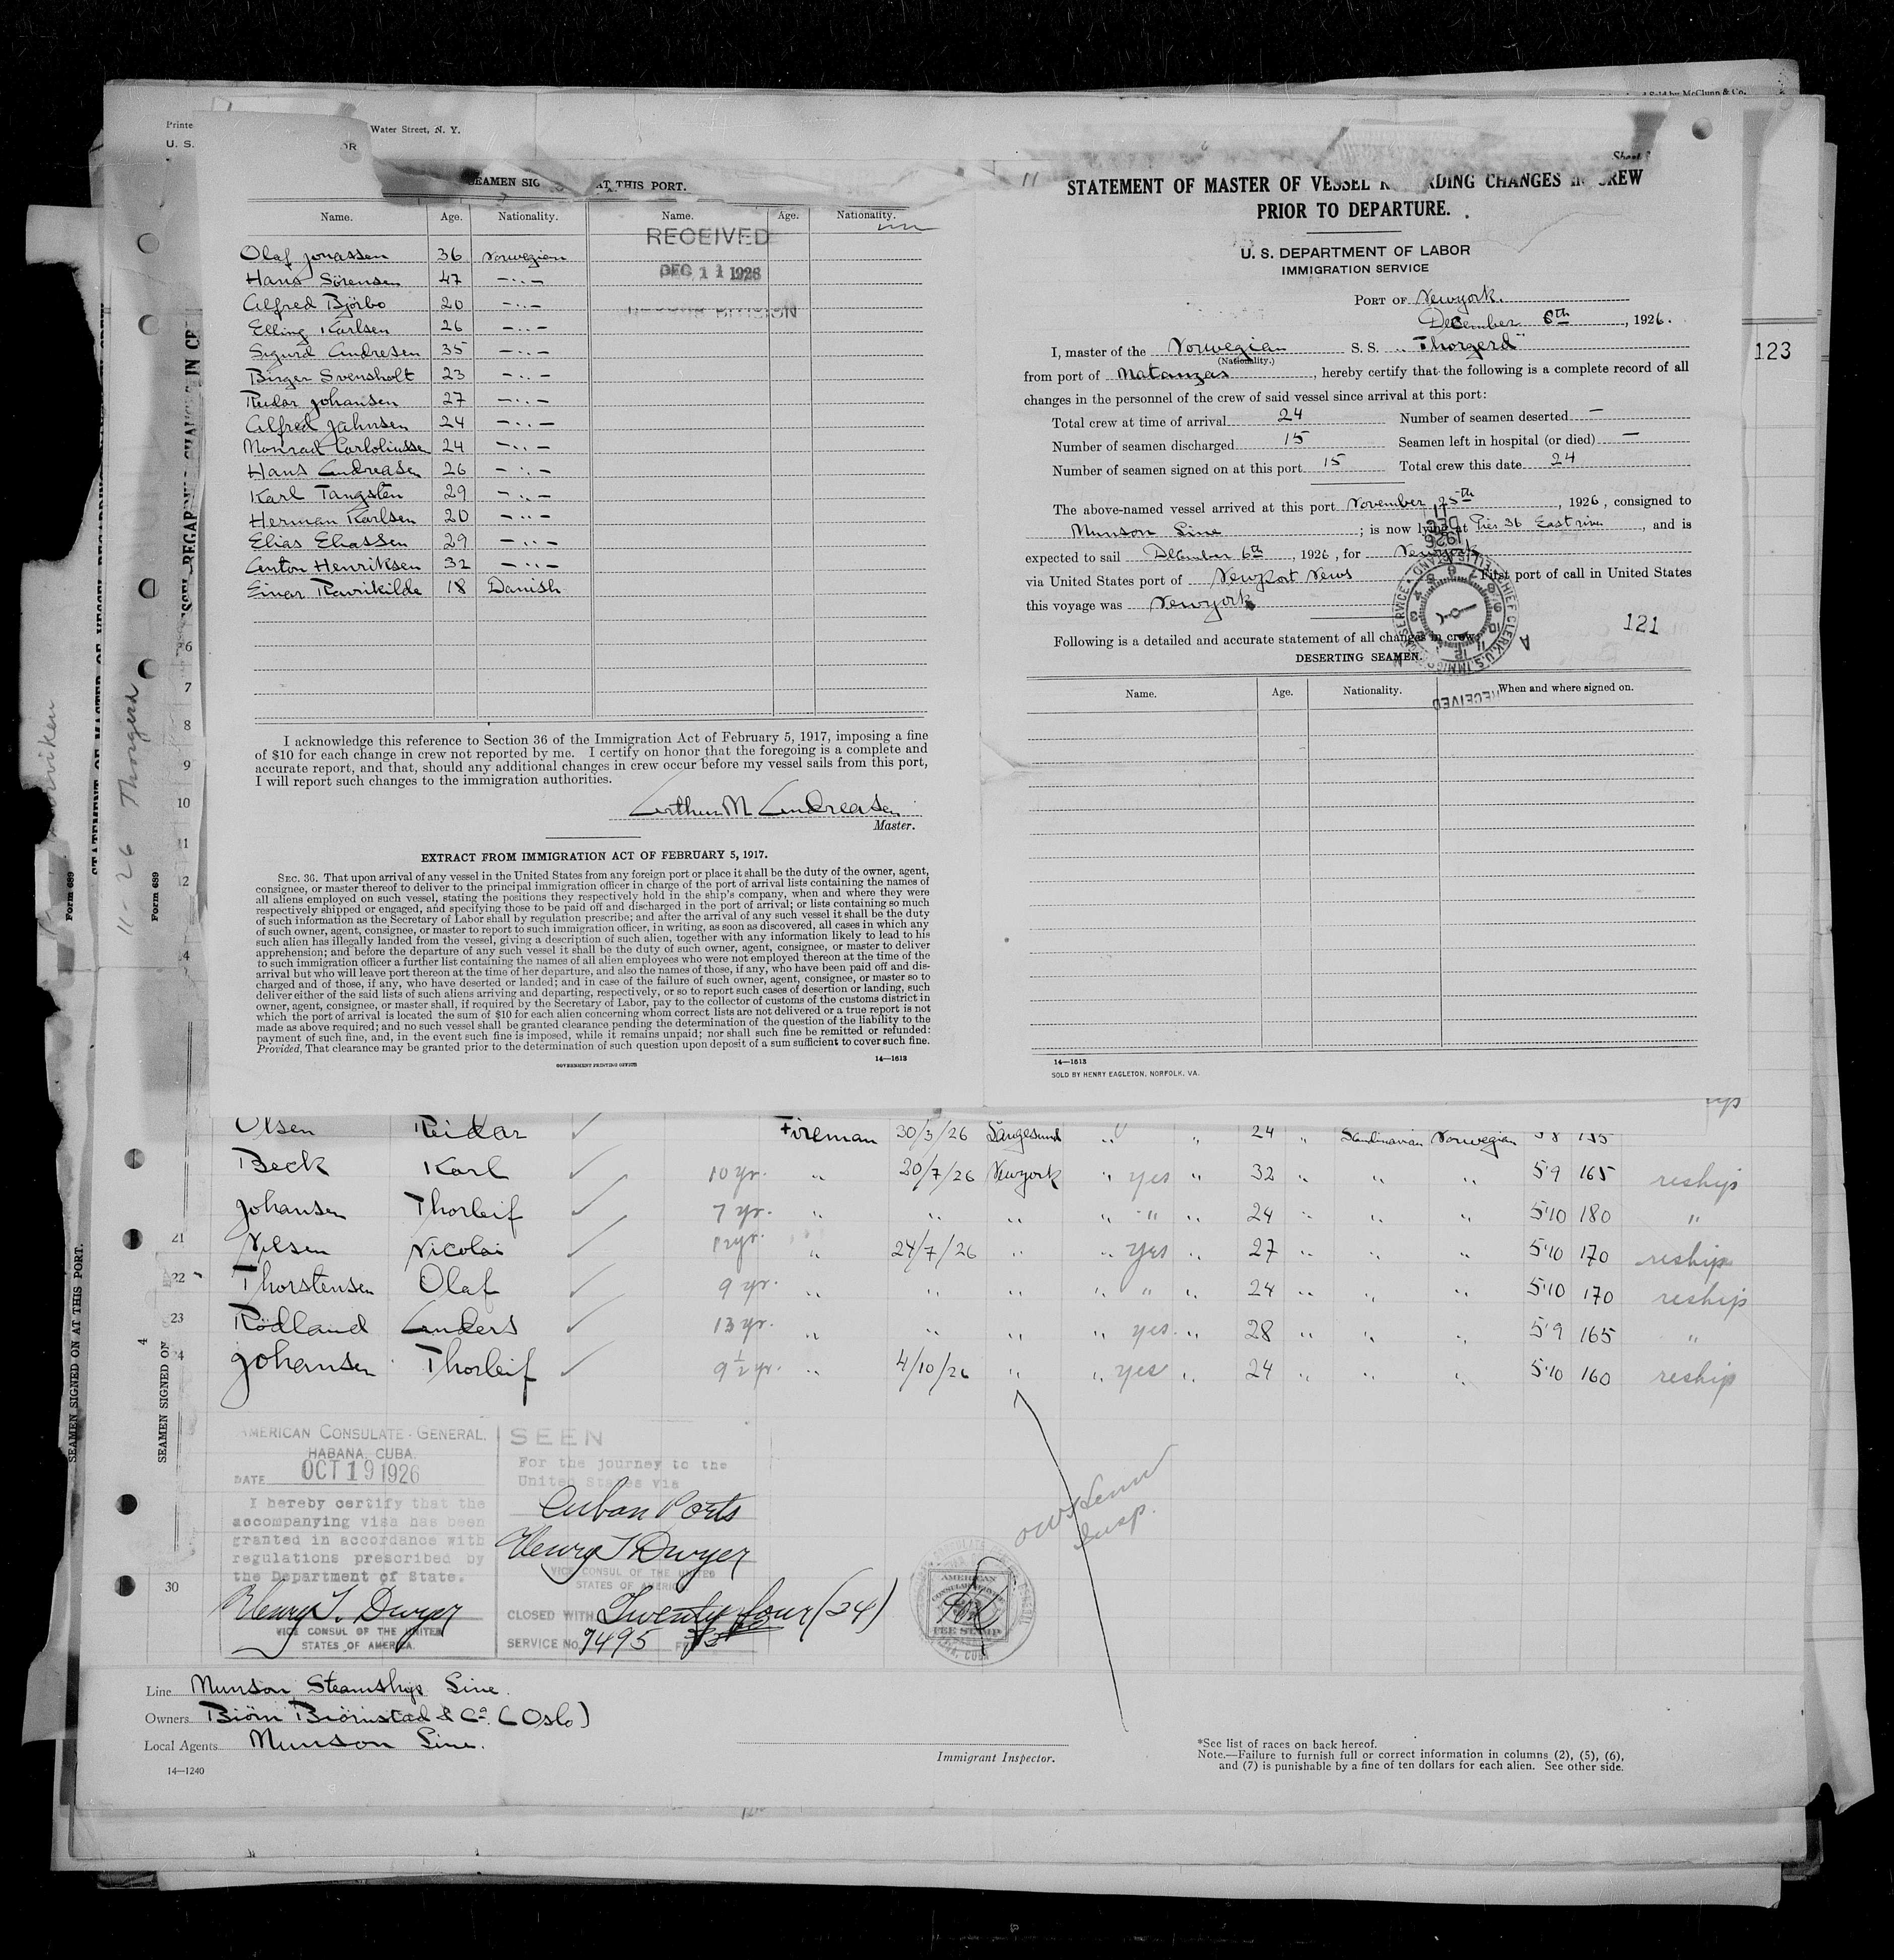 Water Street, N. Y.
U. S.
AT THIS PORT.
Name. Age. Nationality. Name. Age. Nationality.
RECEIVED
DEC 11 1926
Olaf Jonassen 36 Norwegian
Hans Sörensen 47 -..-
Alfred Björbo 20 -..-
Elling Karlsen 26 -..-
Sigurd Andresen 35 -..-
Birger Svensholt 23 -..-
Reidar Johansen 27 -..-
Alfred Jahnsen 24 -..-
Monrad 24 -..-
Hans Andreasen 26 -..-
Karl Tangsten 29 -..-
Herman Karlsen 20 -..-
Elias Eliassen 29 -..-
Anton Henriksen 32 -..-
Einar Ravnkilde 18 Danish
I acknowledge this reference to Section 36 of the Immigration Act of February 5, 1917, imposing a fine
of $10 for each change in crew not reported by me. I certify on honor that the foregoing is a complete and
accurate report, and that, should any additional changes in crew occur before my vessel sails from this port,
I will report such changes to the immigration authorities.
Arthur M Andreasen
Master.
EXTRACT FROM IMMIGRATION ACT OF FEBRUARY 5, 1917.
SEC. 36. That upon arrival of any vessel in the United States from any foreign port or place it shall be the duty of the owner, agent,
consignee, or master thereof to deliver to the principal immigration officer in charge of the port of arrival lists containing the names of
all aliens employed on such vessel, stating the positions they respectively hold in the ship's company, when and where they were
respectively shipped or engaged, and specifying those to be paid off and discharged in the port of arrival; or lists containing so much
of such information as the Secretary of Labor shall by regulation prescribe; and after the arrival of any such vessel it shall be the duty
of such owner, agent, consignee, or master to report to such immigration officer, in writing, as soon as discovered, all cases in which any
such alien has illegally landed from the vessel, giving a description of such alien, together with any information likely to lead to his
apprehension; and before the departure of any such vessel it shall be the duty of such owner, agent, consignee, or master to deliver
to such immigration officer a further list containing the names of all alien employees who were not employed thereon at the time of the
arrival but who will leave port thereon at the time of her departure, and also the names of those, if any, who have been paid off and dis-
charged and of those, if any, who have deserted or landed; and in case of the failure of such owner, agent, consignee, or master so to
deliver either of the said lists of such aliens arriving and departing, respectively, or so to report such cases of desertion or landing, such
owner, agent, consignee, or master shall, if required by the Secretary of Labor, pay to the collector of customs of the customs district in
which the port of arrival is located the sum of $10 for each alien concerning whom correct lists are not delivered or a true report is not
made as above required; and no such vessel shall be granted clearance pending the determination of the question of the liability to the
payment of such fine, and, in the event such fine is imposed, while it remains unpaid; nor shall such fine be remitted or refunded:
Provided, That clearance may be granted prior to the determination of such question upon deposit of a sum sufficient to cover such fine.
14—1613
GOVERNMENT PRINTING OFFICE
11
STATEMENT OF MASTER OF VESSEL CHANGES IN CREW
PRIOR TO DEPARTURE.
U. S. DEPARTMENT OF LABOR
IMMIGRATION SERVICE
PORT OF Newyork.
December 6th, 1926.
I, master of the Norwegian S. S. "Thorgerd"
(Nationality.)
from port of Matanzas, hereby certify that the following is a complete record of all
changes in the personnel of the crew of said vessel since arrival at this port:
Total crew at time of arrival 24 Number of seamen deserted —
Number of seamen discharged 15 Seamen left in hospital (or died) —
Number of seamen signed on at this port 15 Total crew this date 24
The above-named vessel arrived at this port November 25th, 1926, consigned to
Munson Line; is now lying at Pier 36 East river, and is
expected to sail December 6th, 1926, for Newyork
via United States port of Newport News First port of call in United States
this voyage was Newyork
121
Following is a detailed and accurate statement of all changes in crew
DESERTING SEAMEN.
RECEIVED
Name. Age. Nationality. When and where signed on.
14—1613
SOLD BY HENRY EAGLETON, NORFOLK, VA.
123
11-26 Thorgerd
Form 689
Form 689
SEAMEN SIGNED ON AT THIS PORT.
SEAMEN SIGNED ON
Olsen Reidar Fireman 30/3/26 Langesund " " 24 " Scandinavian Norwegian 58 135
Beck Karl 10 yr. " 20/7/26 Newyork " yes " 32 " " " 5'9 165 reship
Johansen Thorleif 7 yr. " " " " " " 24 " " " 5'10 180 "
21 Nilsen Nicolai 12 yr. " 24/7/26 " " yes " 27 " " " 5'10 170 reship
22 Thorstensen Olaf 9 yr. " " " " " " 24 " " " 5'10 170 reship
23 Rödland Anders 13 yr. " " " " yes " 28 " " " 5'9 165 "
24 Johansen Thorleif 9½ yr. " 4/10/26 " " yes " 24 " " " 5'10 160 reship
30
AMERICAN CONSULATE - GENERAL,
HABANA, CUBA.
DATE OCT 19 1926
I hereby certify that the
accompanying visa has been
granted in accordance with
regulations prescribed by
the Department of State.
Henry T. Dwyer
VICE CONSUL OF THE UNITED
STATES OF AMERICA.
SEEN
For the journey to the
United States via
Cuban Ports
Henry T Dwyer
VICE CONSUL OF THE UNITED
STATES OF AMERICA
CLOSED WITH Twenty four (24)
SERVICE NO. 7495
AMERICAN
FEE STAMP
Insp.
Line Munson Steamship Line.
Owners Biörn Biörnstad & Co. (Oslo)
Local Agents Munson Line.
14—1240
Immigrant Inspector.
*See list of races on back hereof.
Note.—Failure to furnish full or correct information in columns (2), (5), (6),
and (7) is punishable by a fine of ten dollars for each alien. See other side.